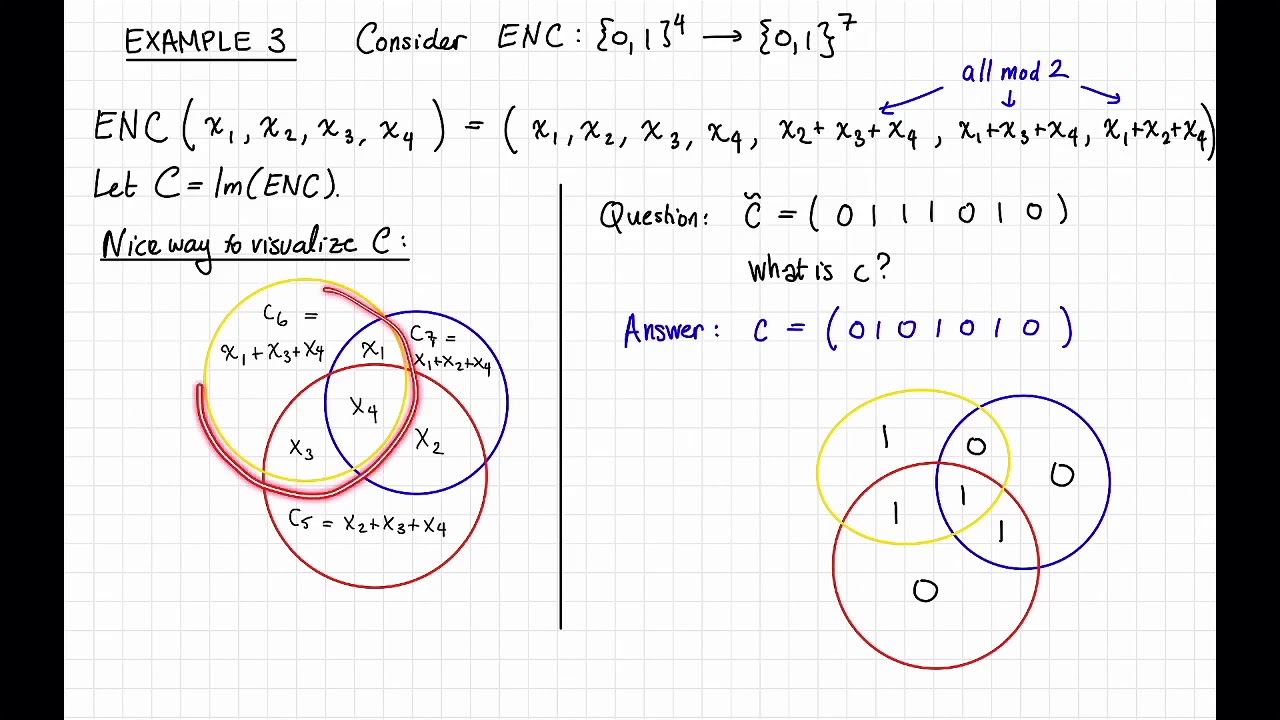 EXAMPLE 3 Consider ENC: {0,1}⁴ → {0,1}⁷
all mod 2
ENC(x₁, x₂, x₃, x₄) = (x₁, x₂, x₃, x₄, x₂+x₃+x₄, x₁+x₃+x₄, x₁+x₂+x₄)
Let C = Im(ENC).
Nice way to visualize C:
C₆ =
x₁+x₃+x₄
x₁
C₇ =
x₁+x₂+x₄
x₄
x₃
x₂
C₅ = x₂+x₃+x₄
Question: c̃ = (0 1 1 1 0 1 0)
What is c?
Answer: c = (0 1 0 1 0 1 0)
1
0
0
1
1
1
0